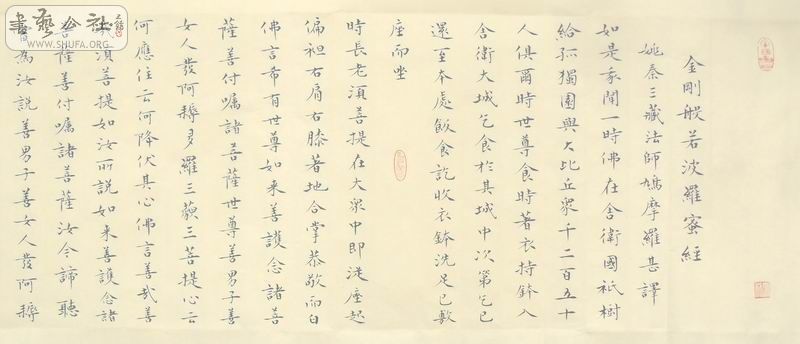 金剛般若波羅蜜經
姚秦三藏法師鳩摩羅甚譯
如是我聞一時佛在舍衛國祇樹
給孤獨園與大比丘眾千二百五十
人俱爾時世尊食時著衣持鉢入
舍衛大城乞食於其城中次第乞已
還至本處飯食訖收衣鉢洗足已敷
座而坐
時長老須菩提在大眾中即從座起
偏袒右肩右膝著地合掌恭敬而白
佛言希有世尊如来善護念諸菩
薩善付嘱諸菩薩世尊善男子善
女人發阿耨多羅三藐三菩提心云
何應住云何降伏其心佛言善哉善
須菩提如汝所說如来善護念諸
菩薩善付嘱諸菩薩汝今諦聽
為汝說善男子善女人發阿耨
書藝公社
WWW.SHUFA.ORG